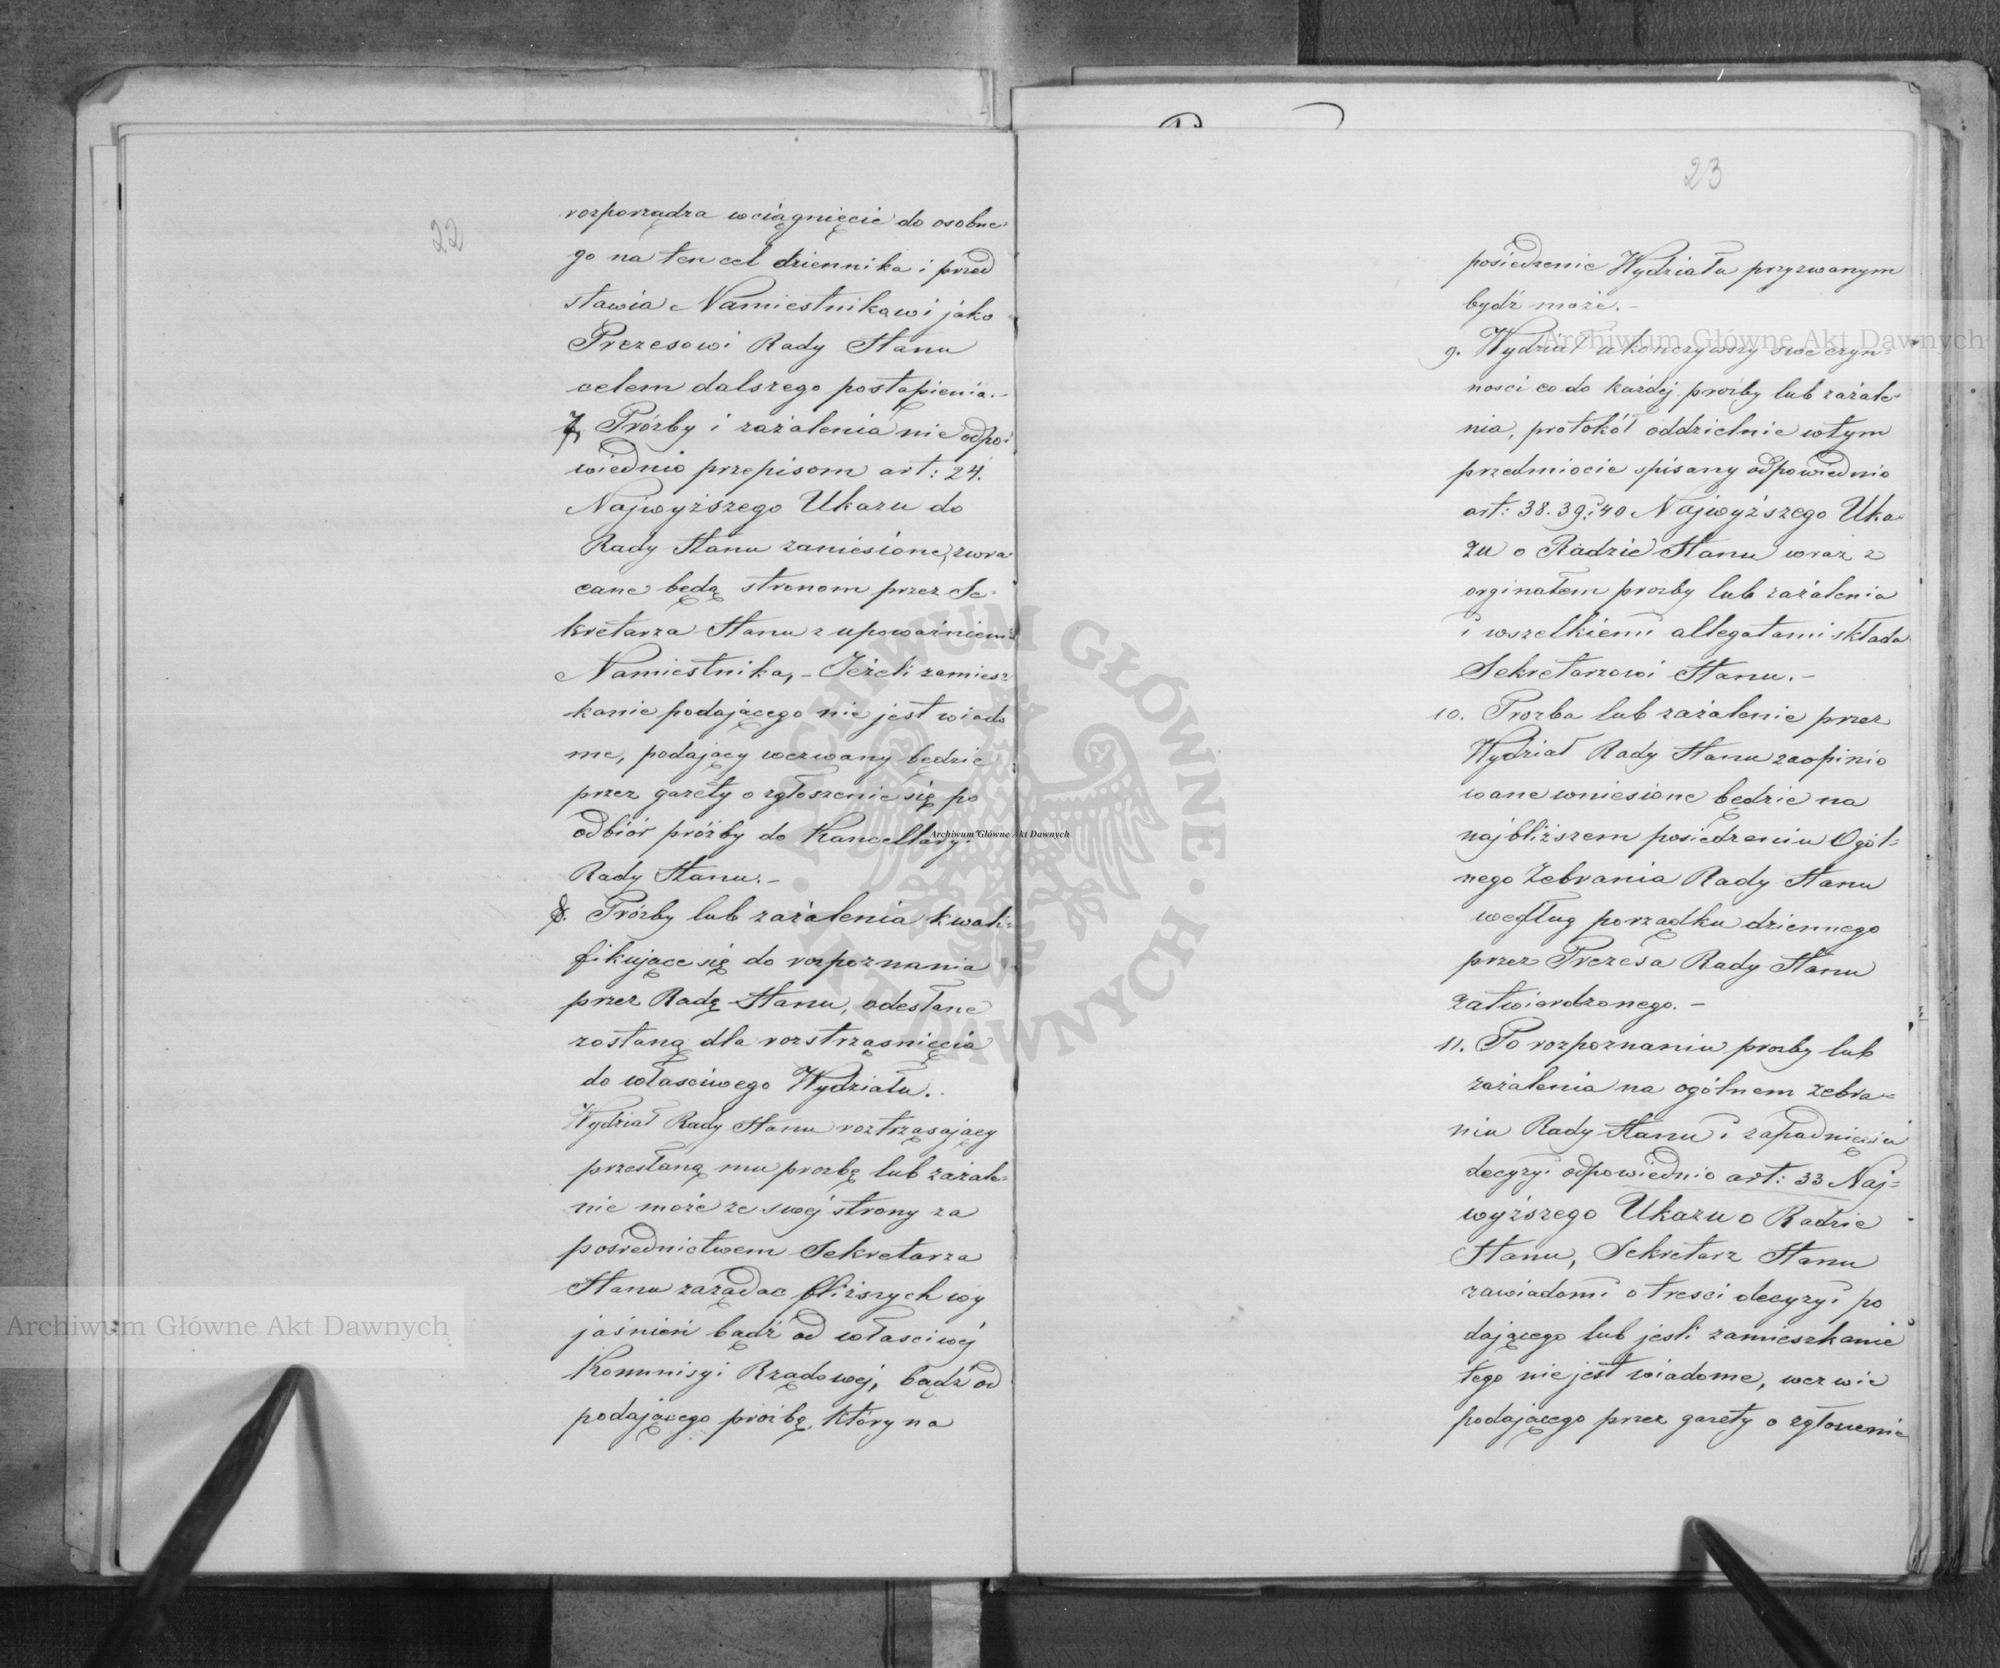 22
rozporządza wciągnięcie do osobne-
go na ten cel dziennika i przed
stawia Namiestnikowi jako
Prezesowi Rady Stanu
celem dalszego postąpienia.-
7. Próźby i zażalenia nie odpo-
wiednio przepisom art: 24.
Najwyższego Ukazu do
Rady Stanu zaniesione, zwra
cane będą stronom przez Se-
kretarza Stanu z upoważnienia
Namiestnika,- Jeżeli zamiesz
kanie podającego nie jest wiado
me, podający wezwany będzie
przez gazety o zgłoszenie się po
odbiór próźby do Kancellaryi
Rady Stanu.-
8. Próźby lub zażalenia kwali-
fikujące się do rozpoznania
przez Radę Stanu, odesłane
zostaną dla rozstrząśnięcia
do własciwego Wydziału.
Wydział Rady Stanu roztrząsający
przesłaną mu prozbę lub zażale-
nie może ze swej strony za
posrednictwem Sekretarza
Stanu zażądac bliższych wy
jaśnień bądź od własciwej
Kommisyi Rządowej, bądź od
podającego proźbę, który na
23
posiedzenie Wydziału przyzwanym
bydź może.-
9. Wydział ukończywszy swe czyn-
nosci co do każdej prozby lub zażale-
nia, protokół oddzielnie w tym
przedmiocie spisany odpowiednio
art: 38. 39. i 40 Najwyższego Uka-
zu o Radzie Stanu wraz z
orginałem prozby lub zażalenia
i wszelkiemi allegatami składa
Sekretarzowi Stanu.-
10. Prozba lub zażalenie przez
Wydział Rady Stanu zaopinio
wane wniesione będzie na
najbliższem posiedzeniu Ogól-
nego Zebrania Rady Stanu
według porządku dziennego
przez Prezesa Rady Stanu
zatwierdzonego.-
11. Po rozpoznaniu prozby lub
zażalenia na ogólnem zebra-
niu Rady Stanu i zapadnięciu
decyzyi odpowiednio art: 33 Naj-
wyższego Ukazu o Radzie
Stanu, Sekretarz Stanu
zawiadomi o tresci decyzyi po
dającego lub jesli zamieszkanie
tego nie jest wiadome, wezwie
podającego przez gazety o zgłoszenie
Archiwum Główne Akt Dawnych
Archiwum Główne Akt Dawnych
Archiwum Główne Akt Dawnych
ARCHIWUM GŁÓWNE · AKT DAWNYCH ·